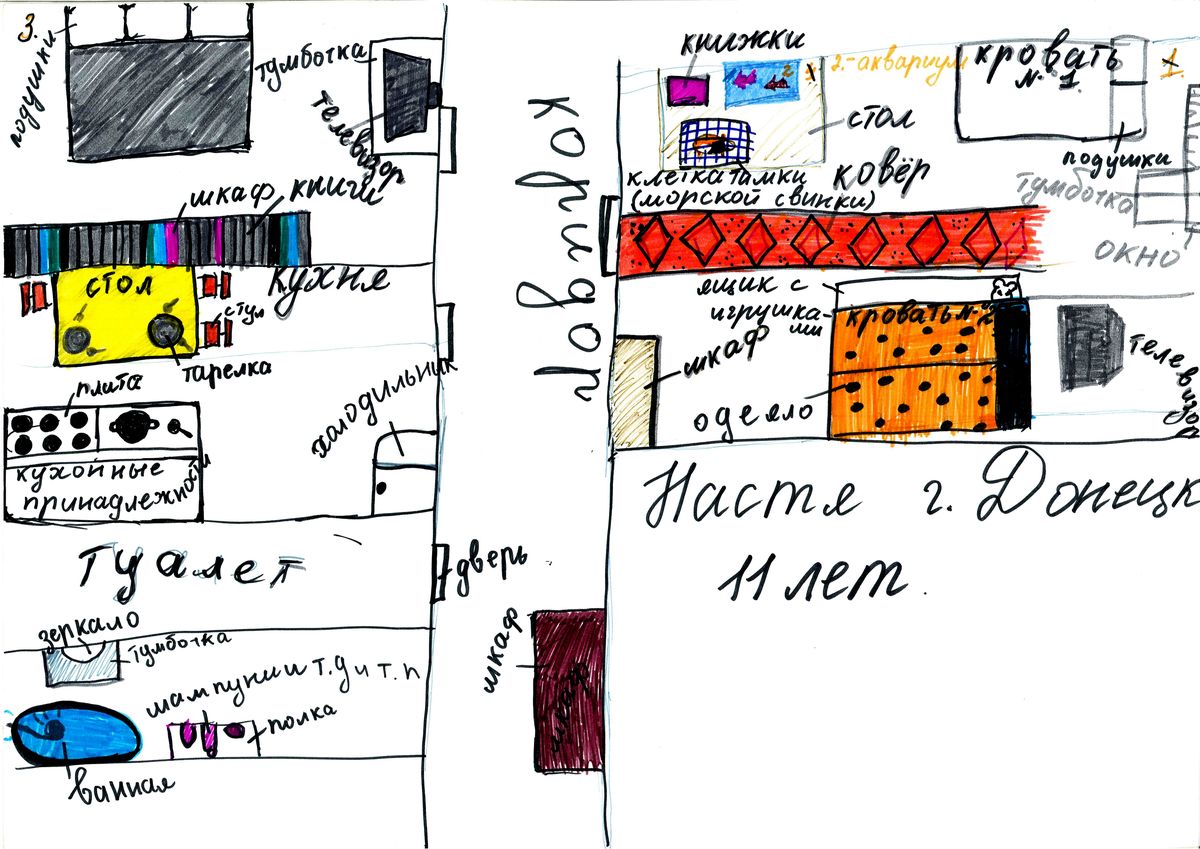 3.
подушки
тумбочка
телевизор
шкаф книги
стол
кухня
стул
тарелка
плита
холодильник
кухойные
принадлежности
туалет
дверь
зеркало
тумбочка
шампуни и т.д и т.п
полка
ванная
коридор
шкаф
шкаф
книжки
2.-аквариум
2
кровать
№1
1
стол
подушки
клетка тамки
(морской свинки)
ковёр
тумбочка
окно
ящик с
игрушка-
ми
кровать №2
шкаф
одеяло
телевизор
Настя г. Донецк
11 лет.